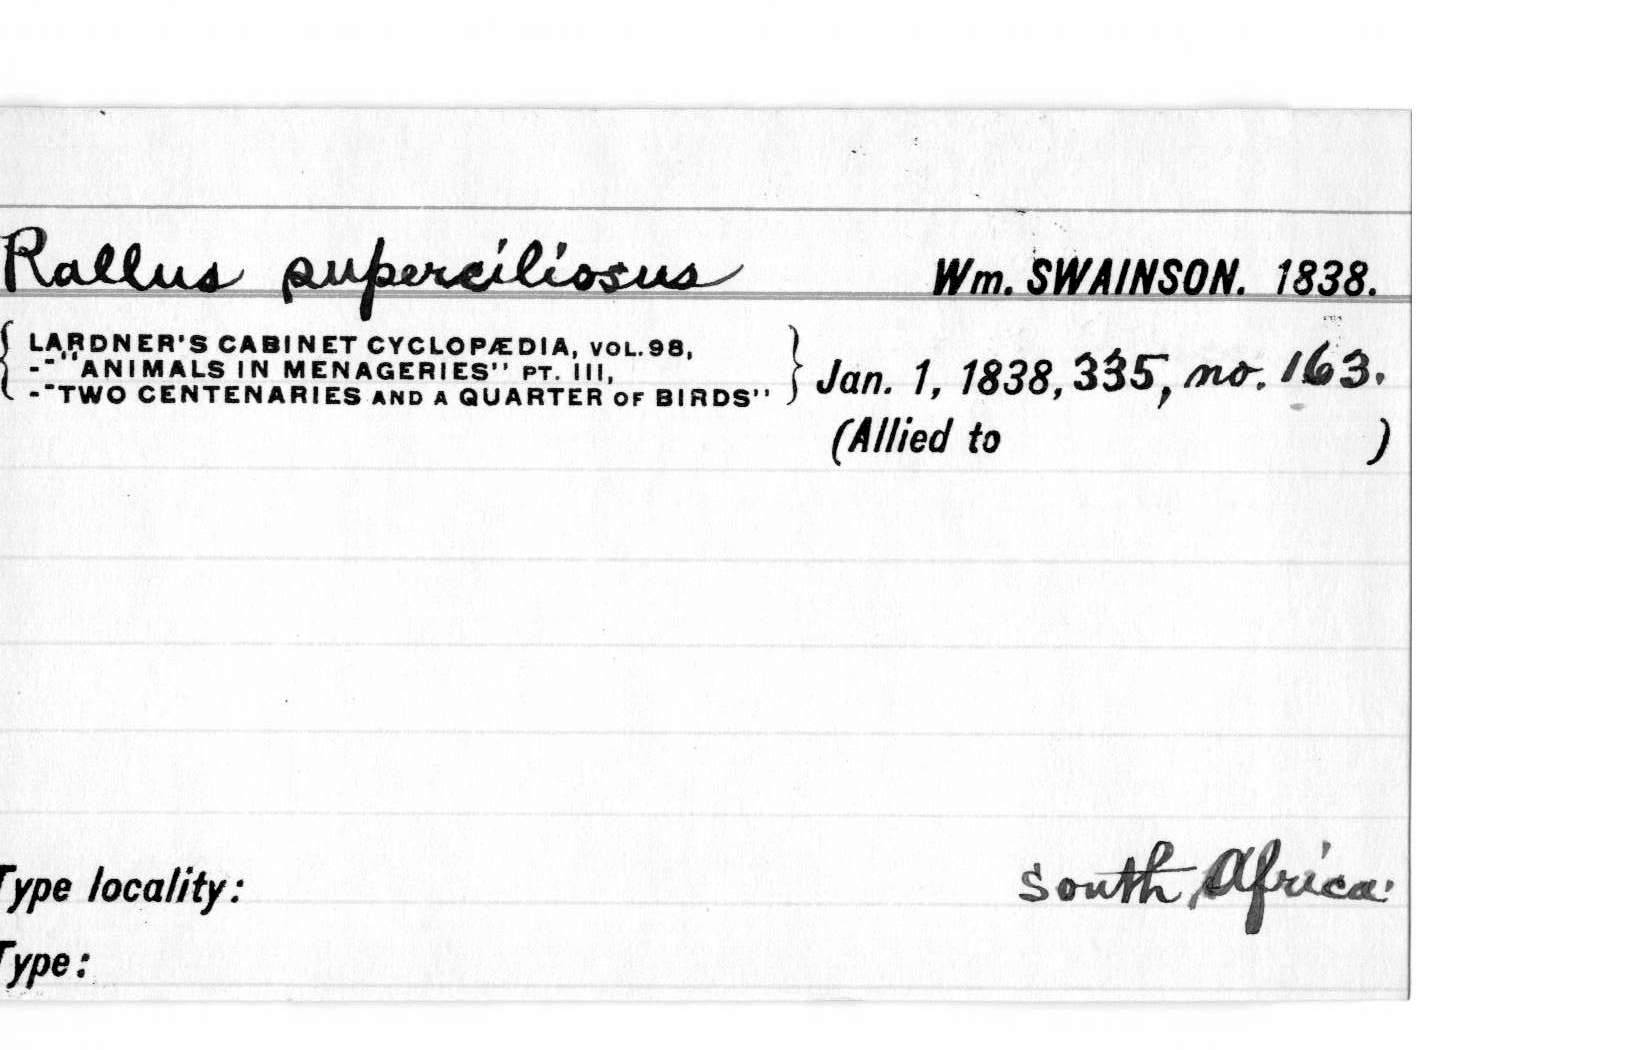 Rallus superciliosus Wm. SWAINSON. 1838.
LARDNER'S CABINET CYCLOPÆDIA, VOL. 98,
-"-"ANIMALS IN MENAGERIES" PT. III,
-"-TWO CENTENARIES AND A QUARTER OF BIRDS" Jan. 1, 1838, 335, no. 163.
(Allied to )
Type locality: South Africa.
Type: